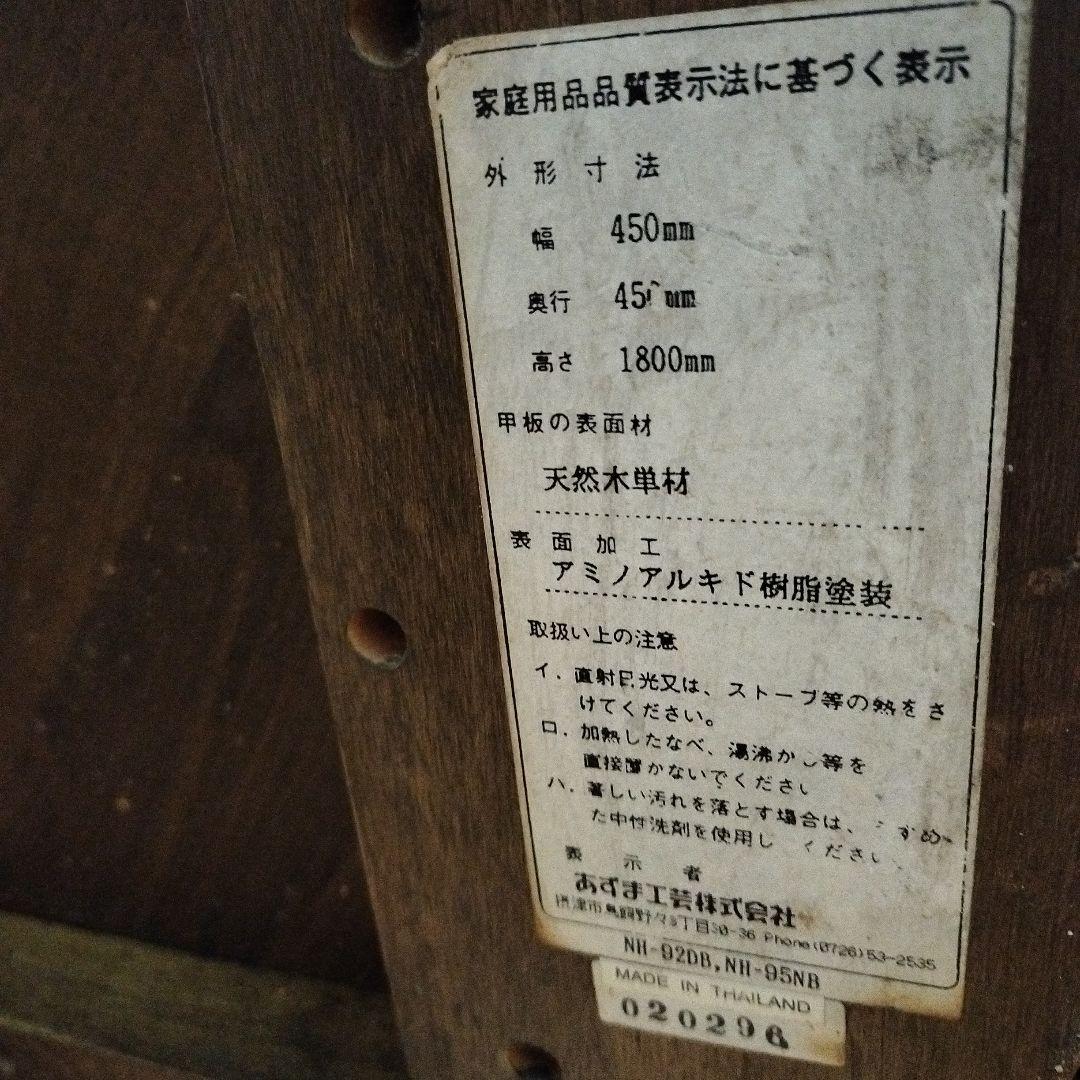 家庭用品品質表示法に基づく表示
外形寸法
幅 450mm
奥行
高さ 1800mm
甲板の表面材
天然木単材
表面加工
アミノアルキド樹脂塗装
取扱い上の注意
イ. 直射日光又は、ストーブ等の熱をさ
けてください。
ロ. 加熱したなべ、湯沸かし等を
直接置かないでください
ハ. 著しい汚れを落とす場合は、
た中性洗剤を使用し ください
表示者
あずま工芸株式会社
摂津市鳥飼野々3丁目30-36 Phone(0726)53-2535
NH-92DB,NH-95NB
MADE IN THAILAND
020296